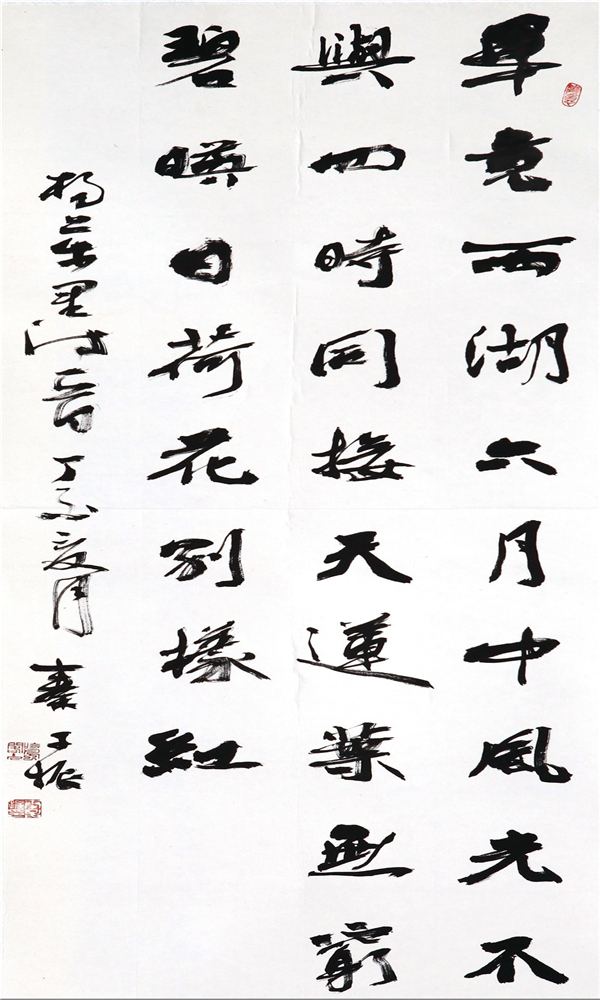 畢竟西湖六月中風光不
與四時同接天蓮葉無窮
碧暎日荷花別樣紅
楊萬里詩一首丁亥夏月秦子振